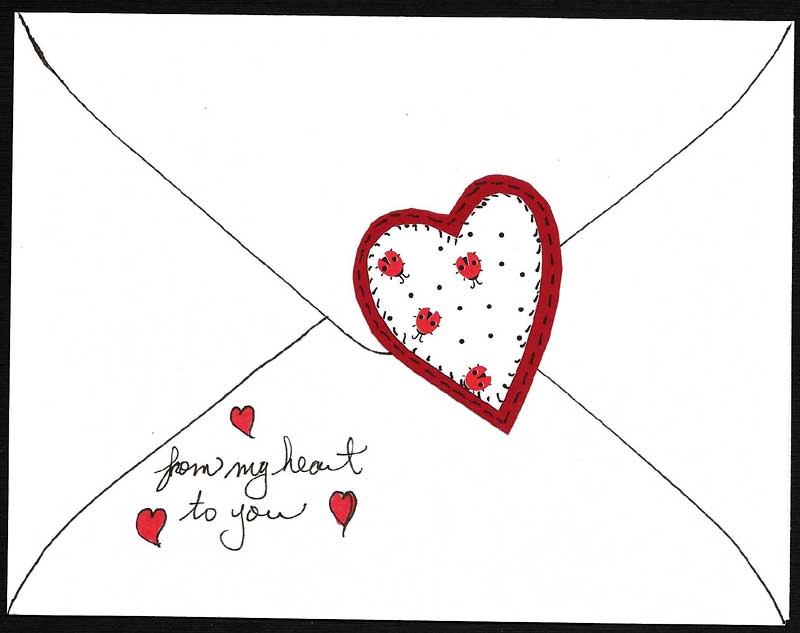 from my heart
to you